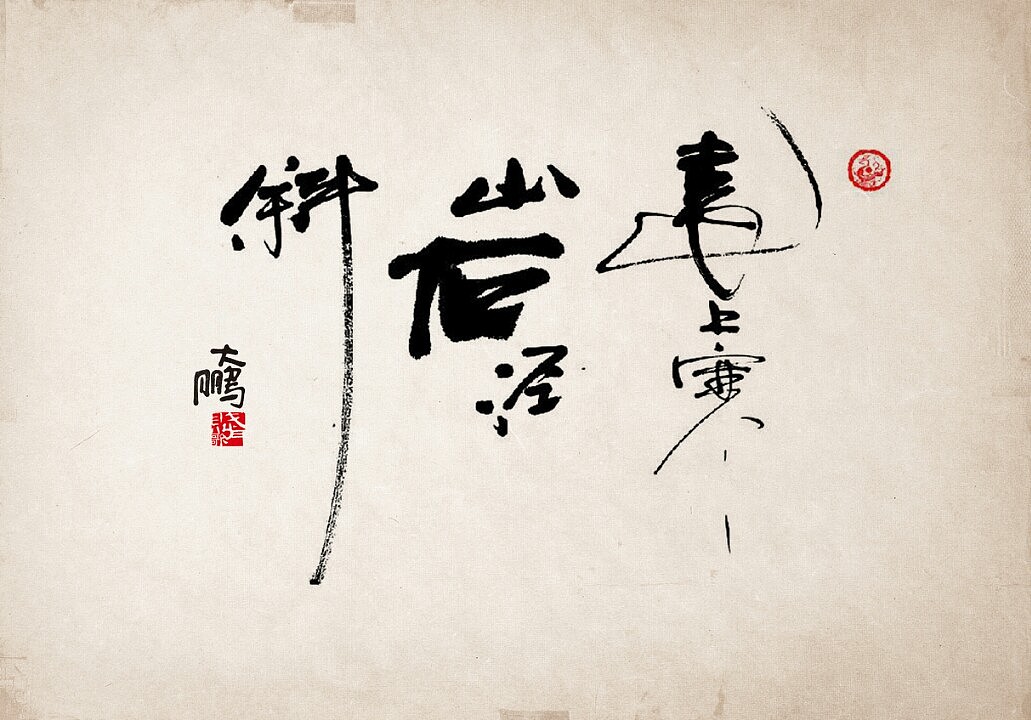 远上寒
山石径
斜
大鹏